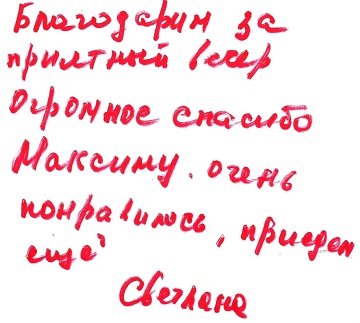 Благодарим за
приятный вечер
Огромное спасибо
Максиму. очень
понравилось, приедем
ещё
Светлана